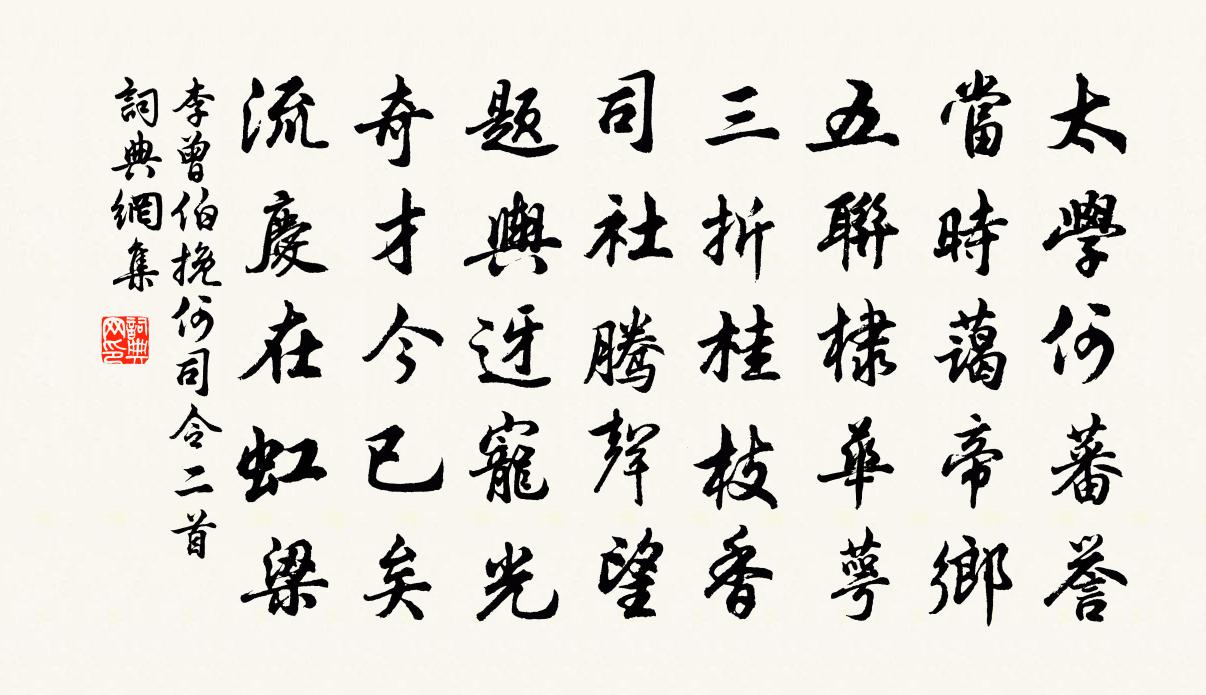 太學何蕃譽
當時藹帝鄉
五聯棣華萼
三折桂枝香
司社騰聲望
題輿迓寵光
奇才今已矣
流慶在虹梁
李曾伯挽何司令二首
詞典網集
詞典网印